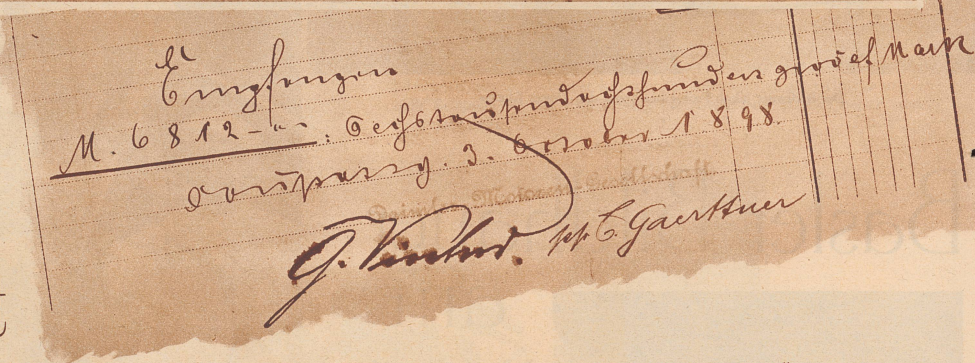 Empfangen
M. 6812-"-: Sechstausendachthundert zwölf Mark
3. October 1898
Daimler-Motoren-Gesellschaft.
G. pp C. Gaerttner